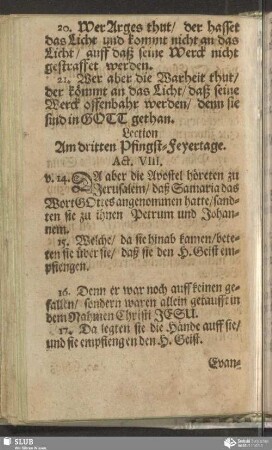 20. Wer Arges thut/ der hasset
das Licht und kommt nicht an das
Licht/ auff daß seine Werck nicht
gestraffet werden.
21. Wer aber die Warheit thut/
der kömmt an das Licht/ daß seine
Werck offenbahr werden/ denn sie
sind in GOTT gethan.
Lection
Am dritten Pfingst-Feyertage.
Act. VIII.
v. 14. DA aber die Apostel höreten zu
Jerusalem/ daß Samaria das
Wort GOttes angenommen hatte/ sand-
ten sie zu ihnen Petrum und Johan-
nem.
15. Welche/ da sie hinab kamen/ bete-
ten sie über sie/ daß sie den H. Geist em-
pfiengen.
16. Denn er war noch auff keinen ge-
fallen/ sondern waren allein getaufft in
dem Nahmen Christi JESU.
17. Da legten sie die Hände auff sie/
und sie empfiengen den H. Geist.
Evan-
SLUB
Wir führen Wissen.